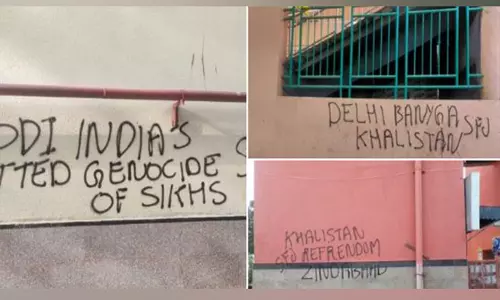 ODI INDIA's
TTED GENOCIDE
OF SIKHS
DELHI BANYGA
KHALISTAN SFJ
KHALISTAN
SFJ REFRENDOM
ZINDABAAD